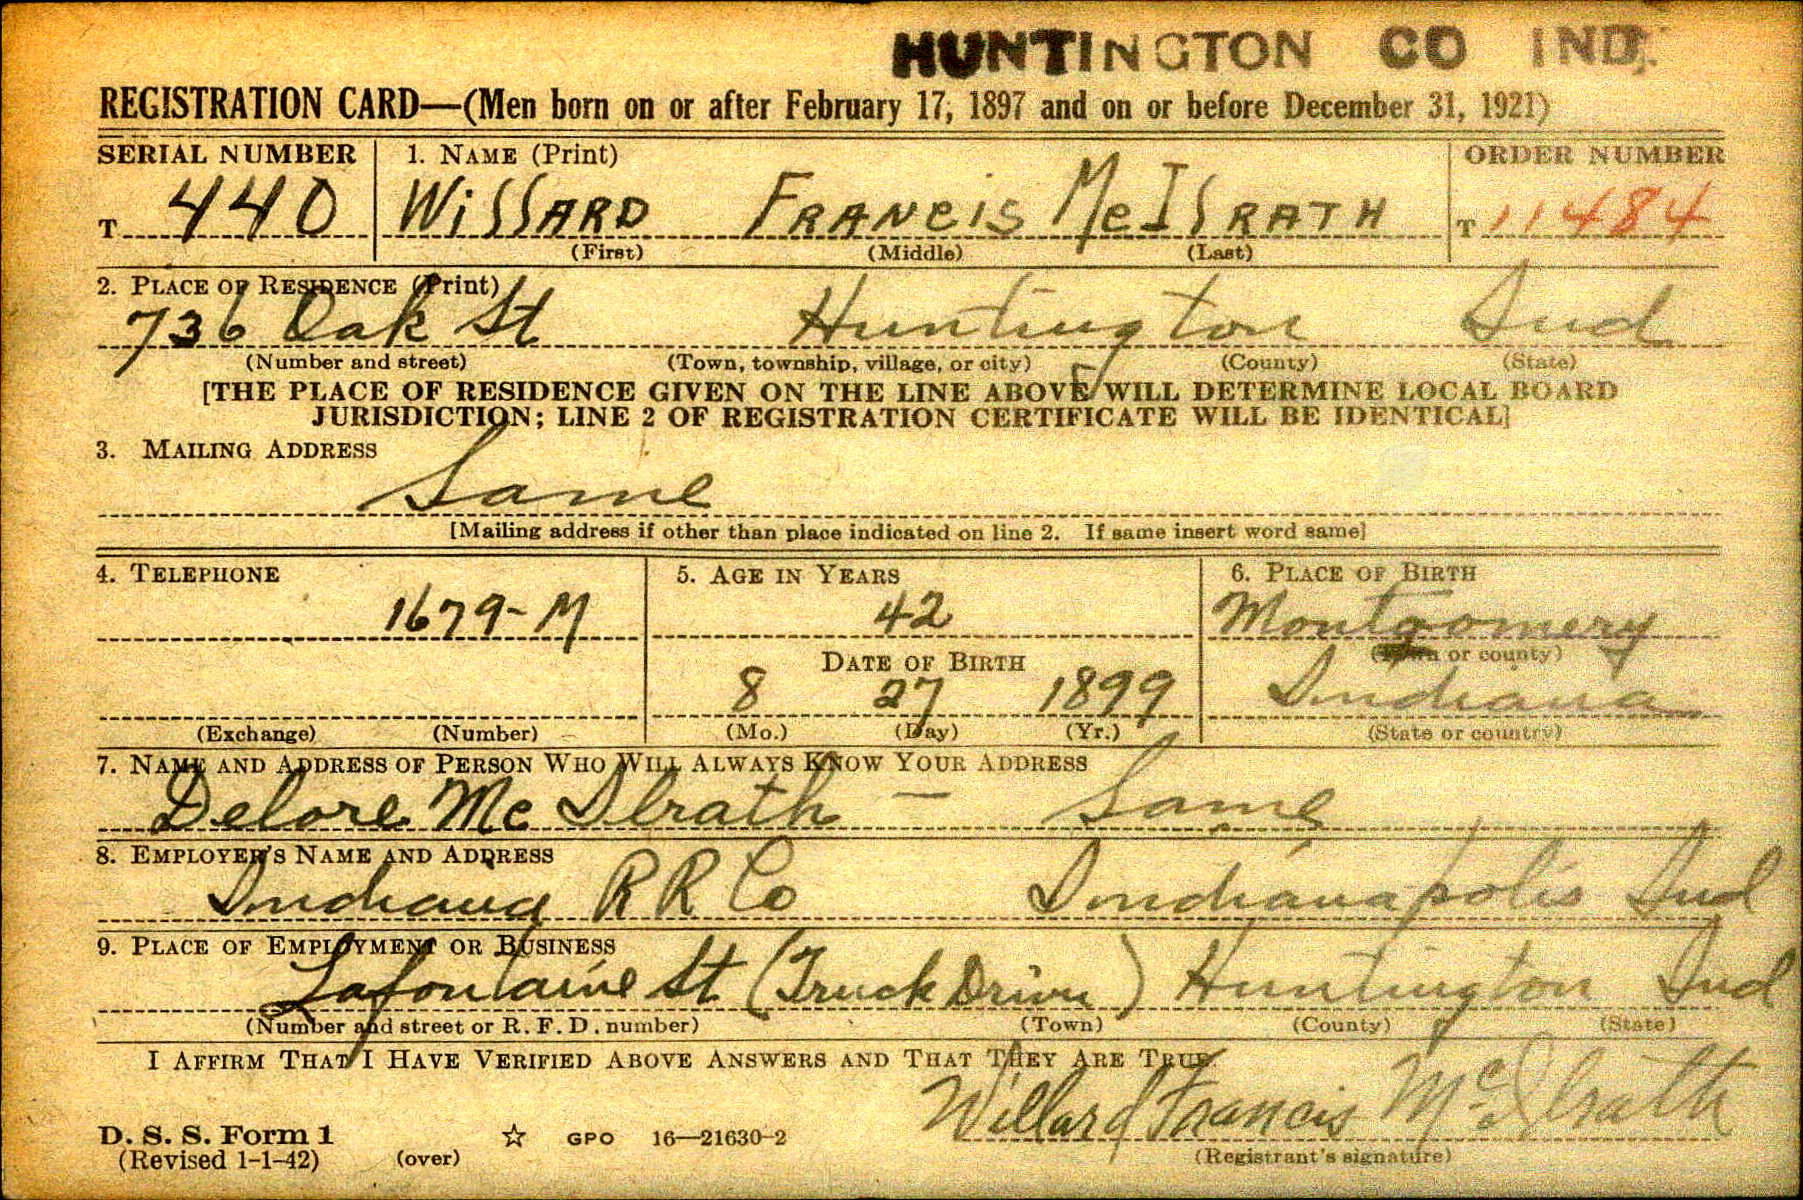 HUNTINGTON CO IND.
REGISTRATION CARD—(Men born on or after February 17, 1897 and on or before December 31, 1921)
SERIAL NUMBER 1. NAME (Print) ORDER NUMBER
T 440 Willard Francis McIlrath T 11484
(First) (Middle) (Last)
2. PLACE OF RESIDENCE (Print)
736 Oak St Huntington Ind
(Number and street) (Town, township, village, or city) (County) (State)
[THE PLACE OF RESIDENCE GIVEN ON THE LINE ABOVE WILL DETERMINE LOCAL BOARD
JURISDICTION; LINE 2 OF REGISTRATION CERTIFICATE WILL BE IDENTICAL]
3. MAILING ADDRESS
Same
[Mailing address if other than place indicated on line 2. If same insert word same]
4. TELEPHONE 5. AGE IN YEARS 6. PLACE OF BIRTH
1679-M 42 Montgomery
DATE OF BIRTH (Town or county)
8 27 1899 Indiana
(Exchange) (Number) (Mo.) (Day) (Yr.) (State or country)
7. NAME AND ADDRESS OF PERSON WHO WILL ALWAYS KNOW YOUR ADDRESS
Delore McIlrath — Same
8. EMPLOYER'S NAME AND ADDRESS
Indiana RR Co Indianapolis Ind
9. PLACE OF EMPLOYMENT OR BUSINESS
Lafontaine St (Truck Driver) Huntington Ind
(Number and street or R. F. D. number) (Town) (County) (State)
I AFFIRM THAT I HAVE VERIFIED ABOVE ANSWERS AND THAT THEY ARE TRUE.
Willard Francis McIlrath
D. S. S. Form 1 ☆ GPO 16—21630-2
(Revised 1-1-42) (over) (Registrant's signature)